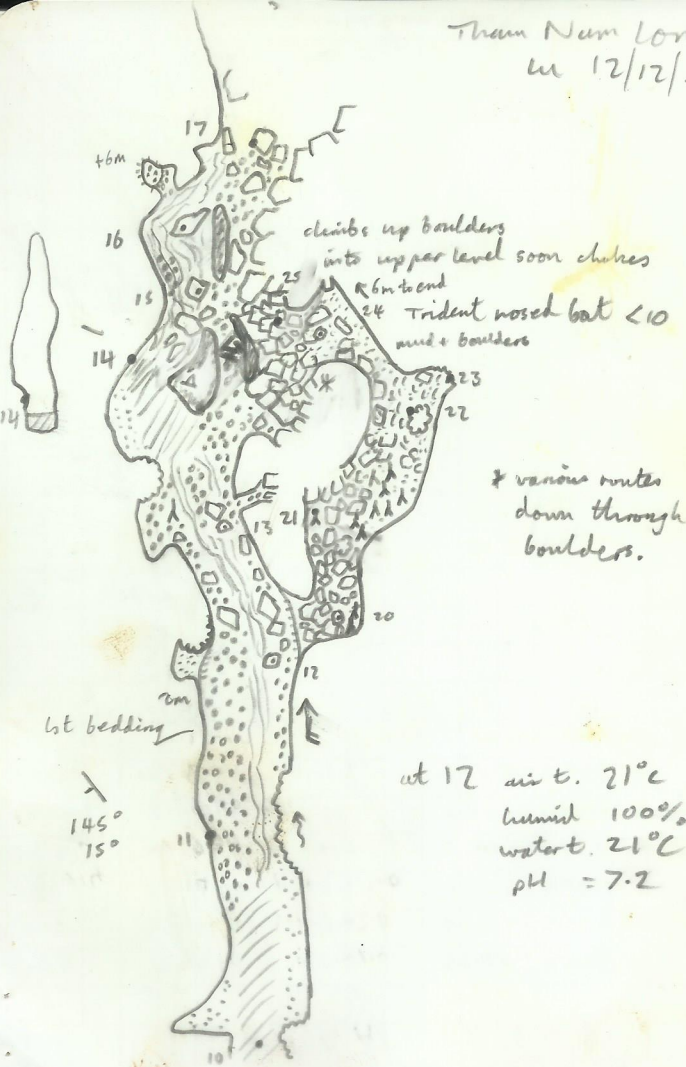 Tham Nam Lon
LW 12/12/
17
+6m
16
climbs up boulders
into upper level soon chokes
25
6m to end
15
24 Trident nosed bat <10
mud + boulders
14
23
22
*
14
* various routes
down through
boulders.
21
13
20
12
lst bedding
at 12 air t. 21°C
humid 100%
water t. 21°C
pH = 7.2
145°
15°
11
10